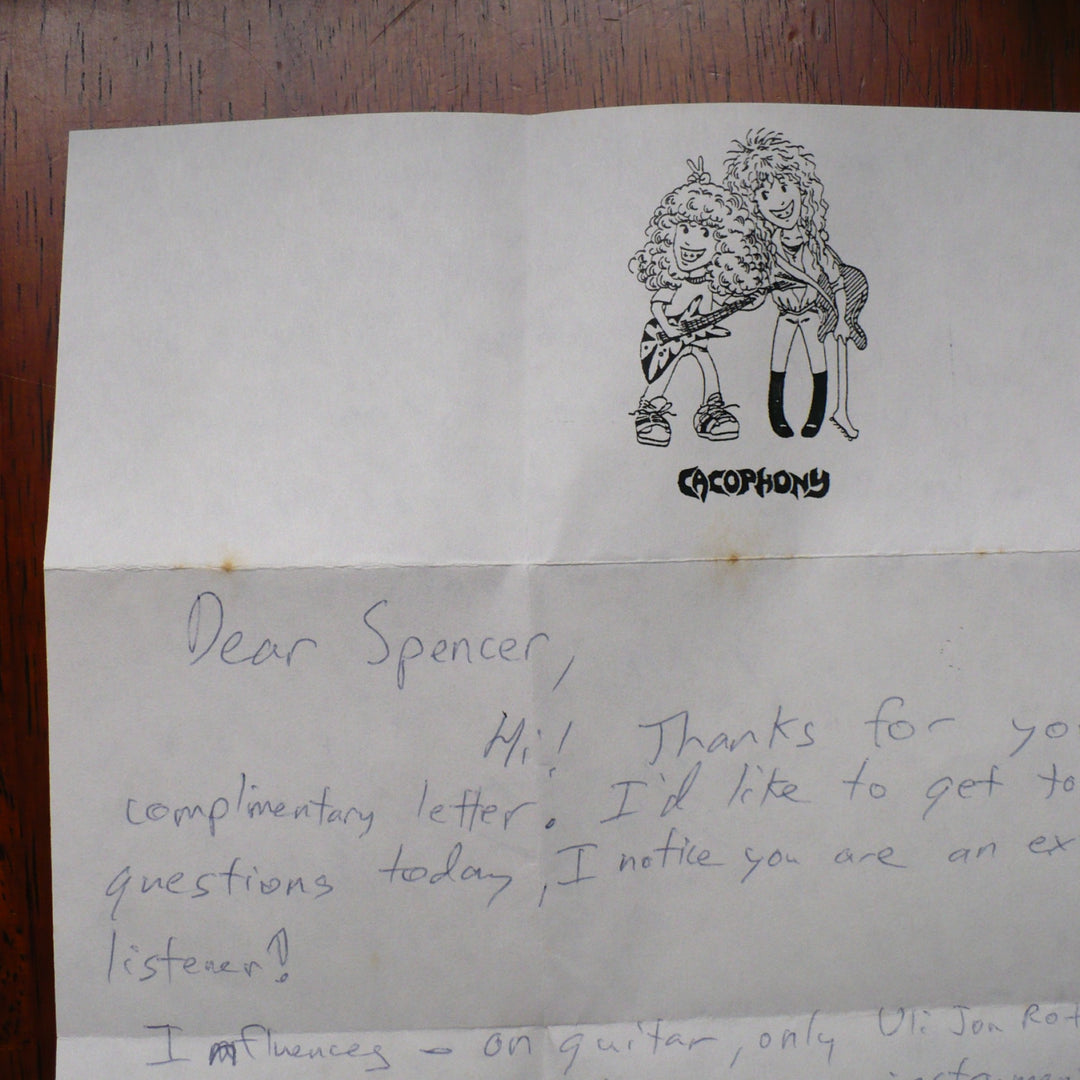 CACOPHONY
Dear Spencer,
Hi! Thanks for yo
complimentary letter. I'd like to get to
questions today, I notice you are an ex
listener!
Influences - on guitar, only Uli Jon Rot